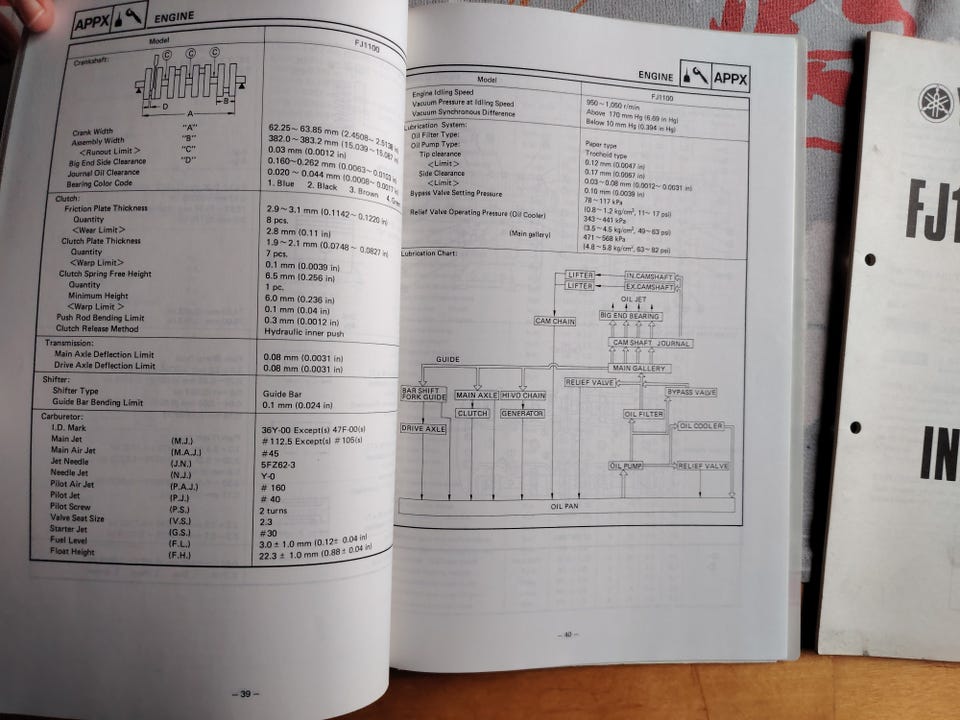 APPX ENGINE
Model FJ1100
Crankshaft:
C C C
D B
A
Crank Width "A" 62.25~63.85 mm (2.4508~2.5138 in)
Assembly Width "B" 382.0~383.2 mm (15.039~15.087 in)
<Runout Limit> "C" 0.03 mm (0.0012 in)
Big End Side Clearance "D" 0.160~0.262 mm (0.0063~0.0103 in)
Journal Oil Clearance 0.020~0.044 mm (0.0008~0.0017 in)
Bearing Color Code 1. Blue 2. Black 3. Brown 4. Green
Clutch:
Friction Plate Thickness 2.9~3.1 mm (0.1142~0.1220 in)
Quantity 8 pcs.
<Wear Limit> 2.8 mm (0.11 in)
Clutch Plate Thickness 1.9~2.1 mm (0.0748~0.0827 in)
Quantity 7 pcs.
<Warp Limit> 0.1 mm (0.0039 in)
Clutch Spring Free Height 6.5 mm (0.256 in)
Quantity 1 pc.
Minimum Height 6.0 mm (0.236 in)
<Warp Limit> 0.1 mm (0.04 in)
Push Rod Bending Limit 0.3 mm (0.0012 in)
Clutch Release Method Hydraulic inner push
Transmission:
Main Axle Deflection Limit 0.08 mm (0.0031 in)
Drive Axle Deflection Limit 0.08 mm (0.0031 in)
Shifter:
Shifter Type Guide Bar
Guide Bar Bending Limit 0.1 mm (0.024 in)
Carburetor:
I.D. Mark 36Y-00 Except(s) 47F-00(s)
Main Jet (M.J.) #112.5 Except(s) #106(s)
Main Air Jet (M.A.J.) #45
Jet Needle (J.N.) 5FZ62-3
Needle Jet (N.J.) Y-0
Pilot Air Jet (P.A.J.) # 160
Pilot Jet (P.J.) # 40
Pilot Screw (P.S.) 2 turns
Valve Seat Size (V.S.) 2.3
Starter Jet (G.S.) #30
Fuel Level (F.L.) 3.0 ± 1.0 mm (0.12± 0.04 in)
Float Height (F.H.) 22.3 ± 1.0 mm (0.88± 0.04 in)
–39–
ENGINE APPX
Model FJ1100
Engine Idling Speed 950~1,050 r/min
Vacuum Pressure at Idling Speed Above 170 mm Hg (6.69 in Hg)
Vacuum Synchronous Difference Below 10 mm Hg (0.394 in Hg)
Lubrication System:
Oil Filter Type: Paper type
Oil Pump Type: Trochoid type
Tip clearance 0.12 mm (0.0047 in)
<Limit> 0.17 mm (0.0067 in)
Side Clearance 0.03~0.08 mm (0.0012~0.0031 in)
<Limit> 0.10 mm (0.0039 in)
Bypass Valve Setting Pressure 78~117 kPa
(0.8~1.2 kg/cm², 11~17 psi)
Relief Valve Operating Pressure (Oil Cooler) 343~441 kPa
(3.5~4.5 kg/cm², 49~63 psi)
(Main gallery) 471~568 kPa
(4.8~5.8 kg/cm², 63~82 psi)
Lubrication Chart:
LIFTER IN.CAMSHAFT
LIFTER EX.CAMSHAFT
OIL JET
CAM CHAIN BIG END BEARING
CAM SHAFT JOURNAL
GUIDE
MAIN GALLERY
RELIEF VALVE
BYPASS VALVE
BAR SHIFT FORK GUIDE MAIN AXLE HI-VO CHAIN
CLUTCH GENERATOR OIL FILTER
DRIVE AXLE OIL COOLER
OIL PUMP RELIEF VALVE
OIL PAN
–40–
FJ1
IN